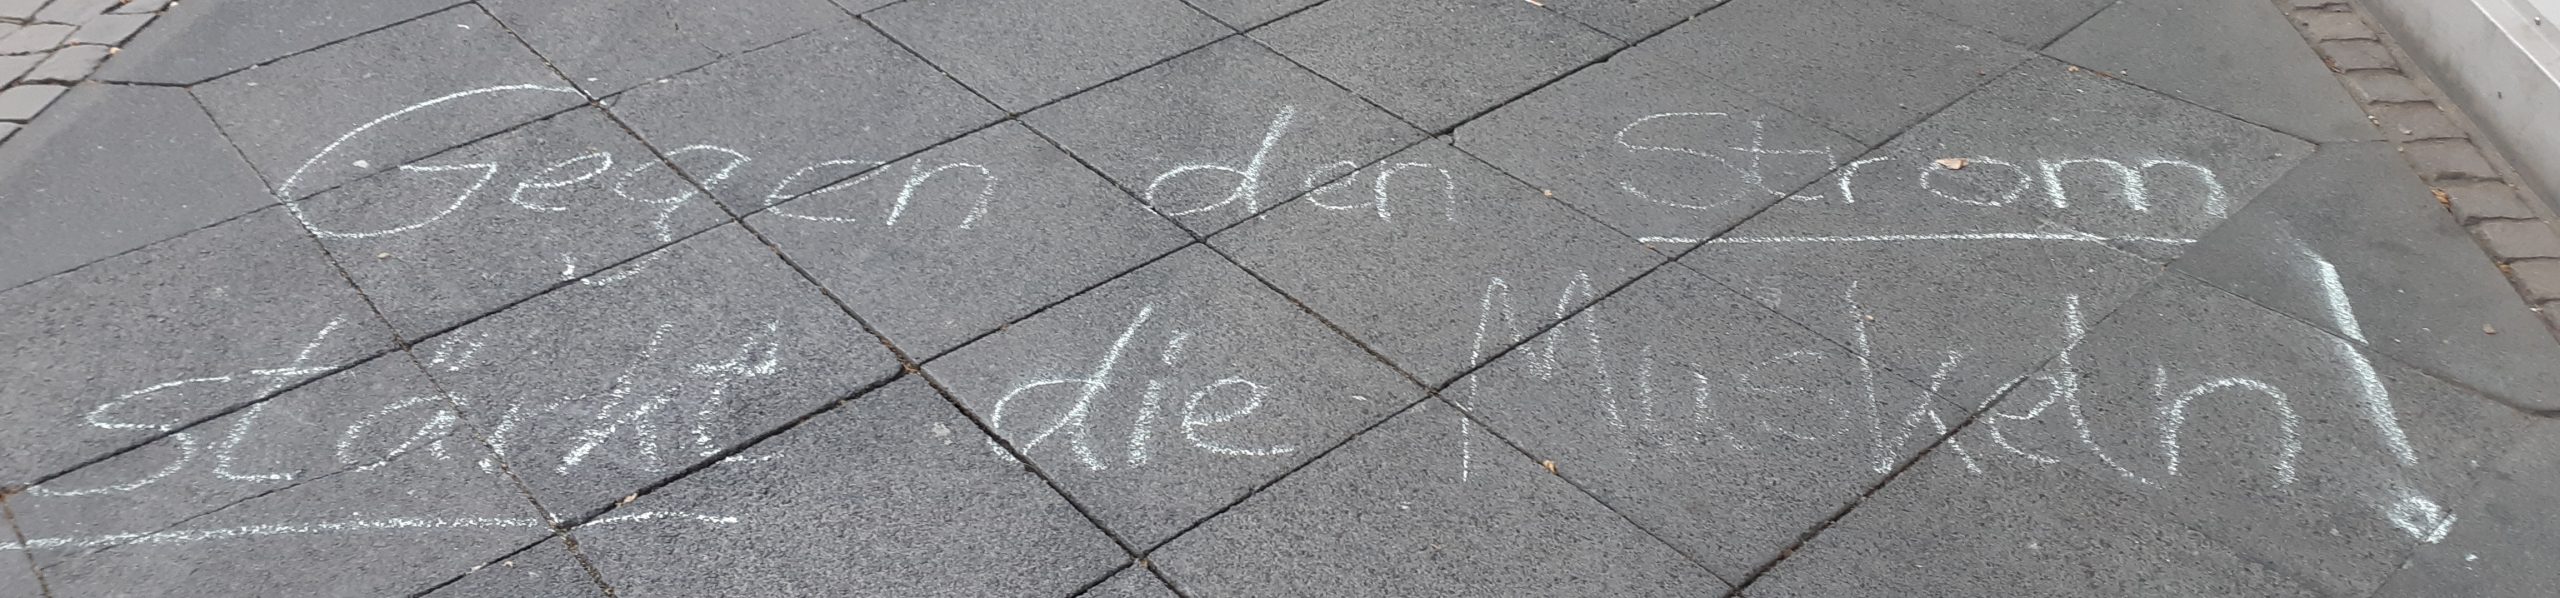 Gegen den Strom
stärkt die Muskeln!